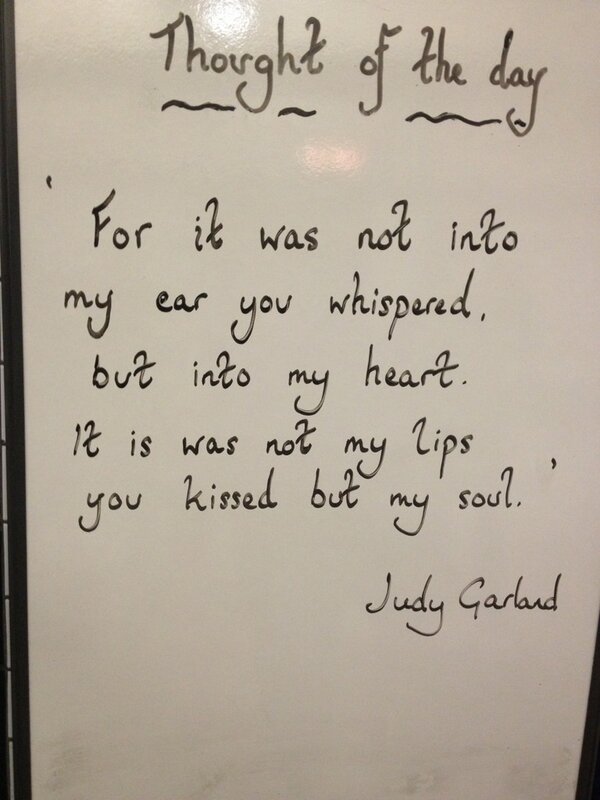 Thought of the day
' For it was not into
my ear you whispered,
but into my heart.
It is was not my lips
you kissed but my soul. '
Judy Garland